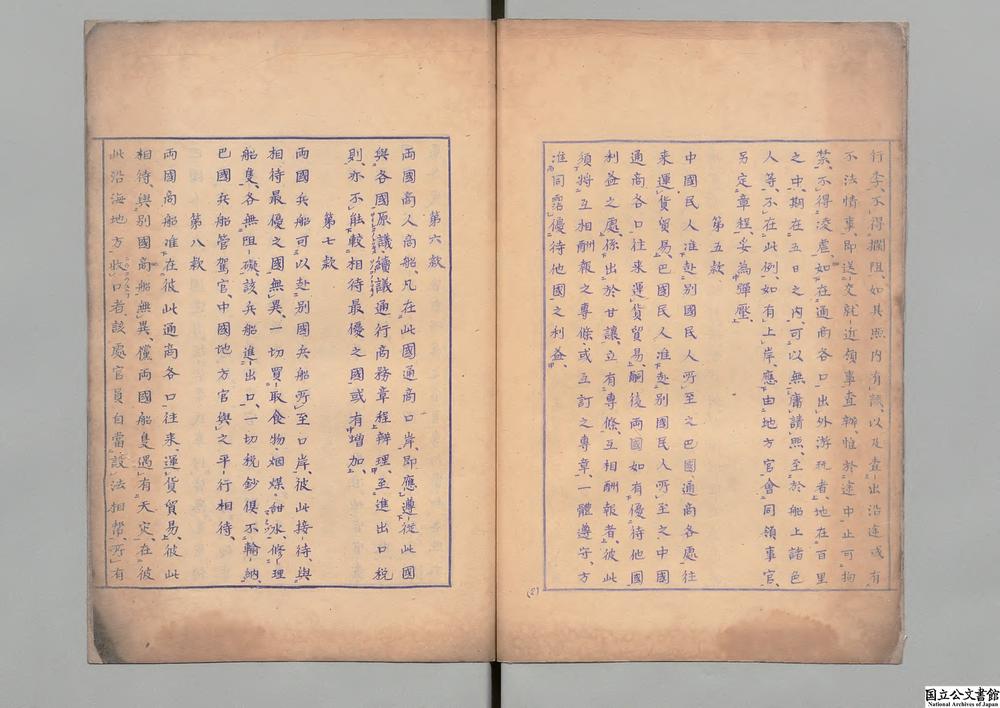 行李、不得攔阻、如其照內有譌、以及查出沿途或有
不法情事、即送交就近領事查辦、惟於途中止可拘
禁、不得凌虐、如在通商各口出外游玩者、地在百里
之中、期在五日之內、可以無庸請照、至於船上諸色
人等、不在此例、如有上岸、應由地方官會同領事官、
另定章程、妥為彈壓、
第五款
中國民人准赴別國民人所至之巴國通商各處、往
來運貨貿易、巴國民人准赴別國民人所至之中國
通商各口往來運貨貿易、嗣後兩國如有優待他國
利益之處、係出於甘讓、立有專條、互相酬報者、彼此
須將互相酬報之專條、或互訂之專章、一體遵守、方
准同霑優待他國之利益、
(2)
第六款
兩國商人商船、凡在此國通商口岸、即應遵從此國
與各國原議續議通行商務章程辦理、至進出口稅
則、亦不能較相待最優之國或有增加、
第七款
兩國兵船可以赴別國兵船所至口岸、彼此接待、與
相待最優之國無異、一切買取食物、烟煤、甜水、修理
船隻、各無阻礙、該兵船進出口、一切稅鈔俱不輸納、
巴國兵船管駕官、中國地方官與之平行相待、
第八款
兩國商船准在彼此通商各口往來、運貨貿易、彼此
相待、與別國商船無異、儻兩國船隻遇有天災、在彼
此沿海地方收口者、該處官員自當設法相幫、所有
国立公文書館
National Archives of Japan